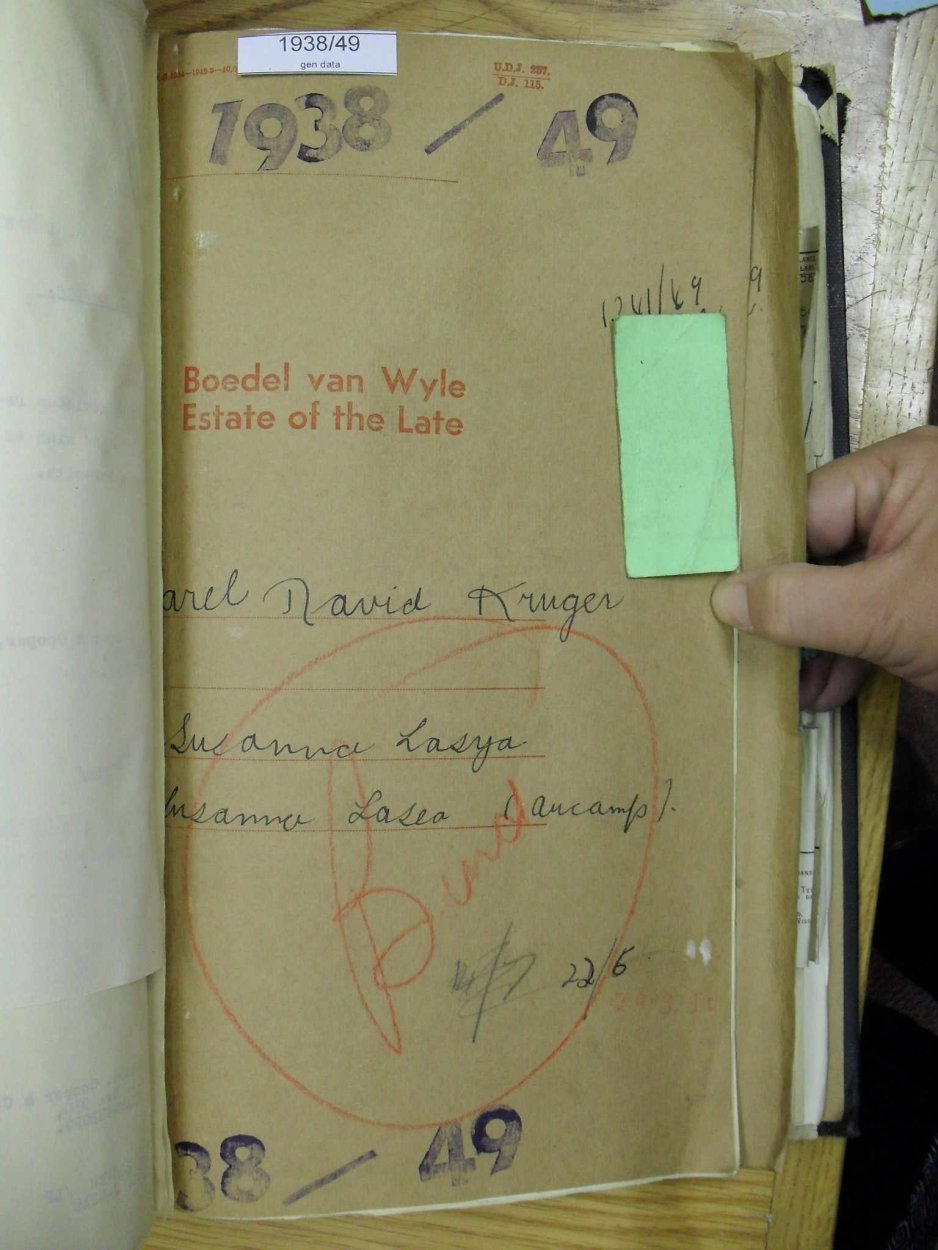 1938/49
gen data
U.D.J. 257.
D.J. 115.
1938 / 49
Boedel van Wyle
Estate of the Late
arel David Kruger
Susanna Lasya
usanna Lasea (Aucamp).
Bind
22/6
38 / 49